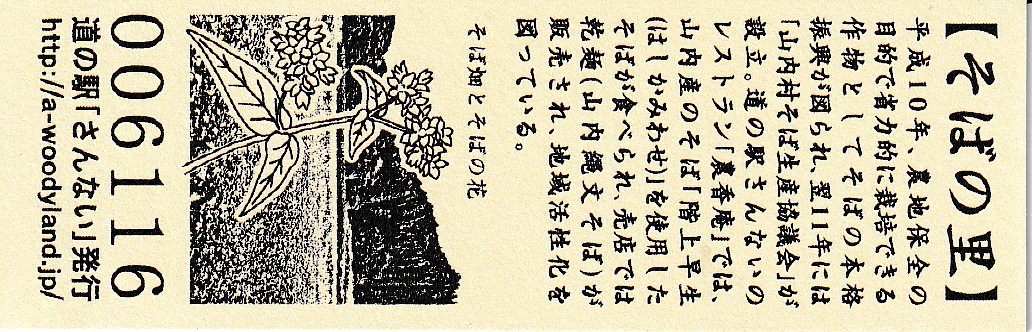 【そばの里】
平成10年、農地保全の
目的で省力的に栽培できる
作物としてそばの本格
振興が図られ、翌11年には
「山内村そば生産協議会」が
設立。道の駅さんないの
レストラン「農香庵」では、
山内産のそば「階上早生
(はしかみわせ)」を使用した
そばが食べられ、売店では
乾麺(山内縄文そば)が
販売され、地域活性化を
図っている。
そば畑とそばの花
006116
道の駅「さんない」発行
http://a-woodyland.jp/